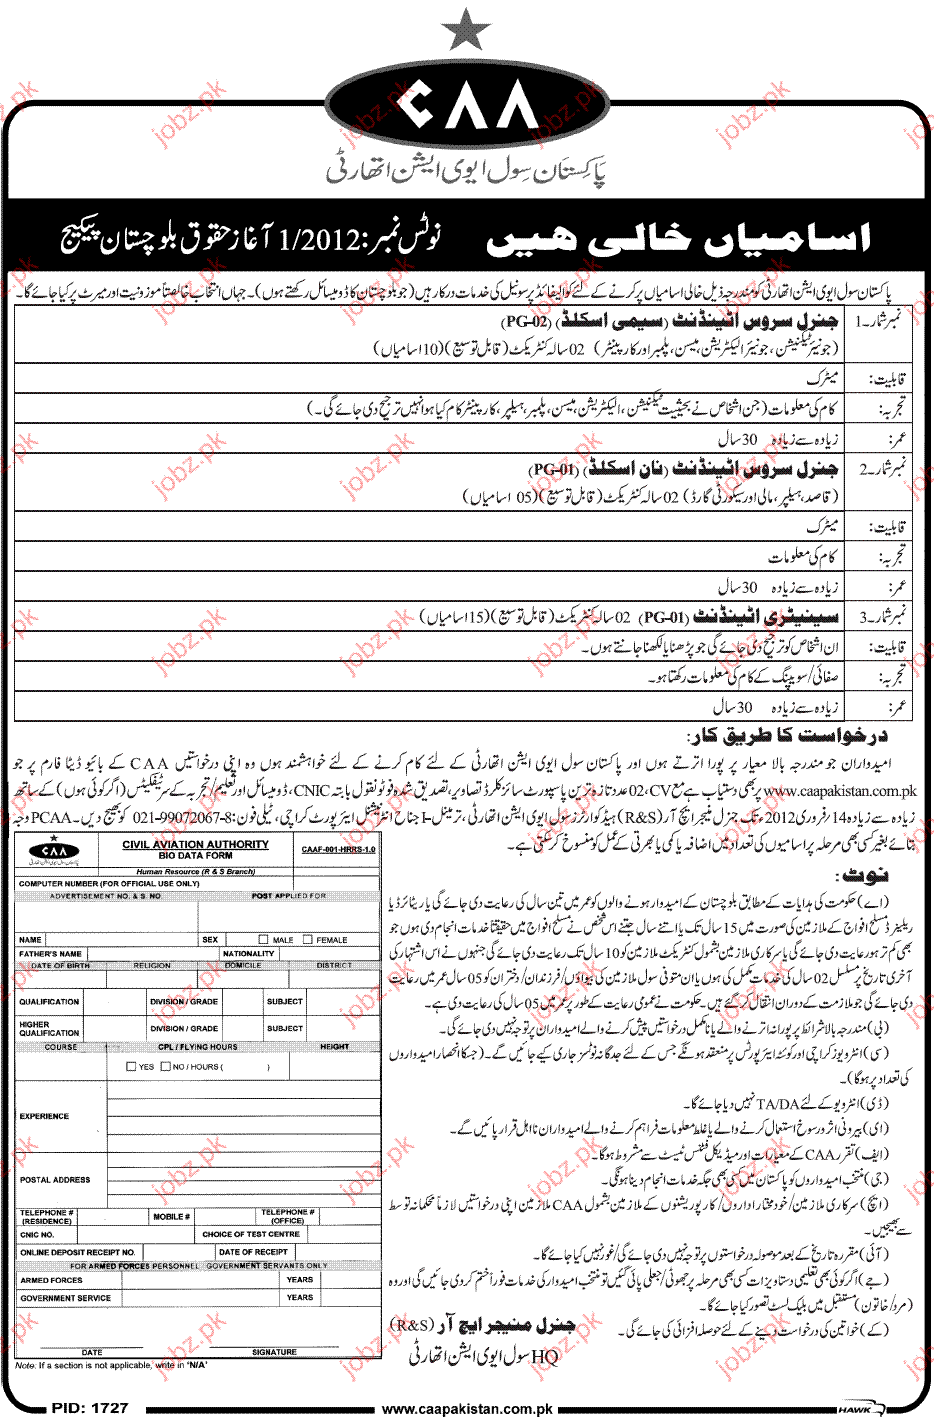 CAA
پاکستان سول ایوی ایشن اتھارٹی
اسامیاں خالی ھیں نوٹس نمبر: 1/2012 آغاز حقوق بلوچستان پیکیج
پاکستان سول ایوی ایشن اتھارٹی کو مندرجہ ذیل خالی اسامیاں پر کرنے کے لئے کوالیفائیڈ پرسونیل کی خدمات درکار ہیں (جو بلوچستان کا ڈومیسائل رکھتے ہوں)۔ جہاں انتخاب خالصتاً موزونیت اور میرٹ پر کیا جائے گا۔
نمبر شمار۔1 جنرل سروس اٹینڈنٹ (سیمی اسکلڈ) (PG-02)
(جونیئر ٹیکنیشن، جونیئر الیکٹریشن، میسن، پلمبر اور کارپینٹر) 02 سالہ کنٹریکٹ (قابل توسیع) (10 اسامیاں)
قابلیت: میٹرک
تجربہ: کام کی معلومات (جن اشخاص نے بحیثیت ٹیکنیشن، الیکٹریشن، میسن، پلمبر، ہیلپر، کارپینٹر کام کیا ہو انہیں ترجیح دی جائے گی۔)
عمر: زیادہ سے زیادہ 30 سال
نمبر شمار۔2 جنرل سروس اٹینڈنٹ (نان اسکلڈ) (PG-01)
(قاصد، ہیلپر، مالی اور سیکورٹی گارڈ) 02 سالہ کنٹریکٹ (قابل توسیع) (05 اسامیاں)
قابلیت: میٹرک
تجربہ: کام کی معلومات
عمر: زیادہ سے زیادہ 30 سال
نمبر شمار۔3 سینیٹری اٹینڈنٹ (PG-01) 02 سالہ کنٹریکٹ (قابل توسیع) (15 اسامیاں)
قابلیت: ان اشخاص کو ترجیح دی جائے گی جو پڑھنا یا لکھنا جانتے ہوں۔
تجربہ: صفائی/سویپنگ کے کام کی معلومات رکھتا ہو۔
عمر: زیادہ سے زیادہ 30 سال
درخواست کا طریق کار:
امیدواران جو مندرجہ بالا معیار پر پورا اترتے ہوں اور پاکستان سول ایوی ایشن اتھارٹی کے لئے کام کرنے کے لئے خواہشمند ہوں وہ اپنی درخواستیں CAA کے بائیو ڈیٹا فارم پر جو
www.caapakistan.com.pk پر بھی دستیاب ہے مع CV، 02 عدد تازہ ترین پاسپورٹ سائز کلرڈ تصاویر، تصدیق شدہ فوٹو نقول بابتہ CNIC، ڈومیسائل اور تعلیم/تجربہ کے سرٹیفکیٹس (اگر کوئی ہوں) کے ساتھ
زیادہ سے زیادہ 14/فروری 2012ء تک جنرل منیجر ایچ آر (R&S) ہیڈکوارٹرز سول ایوی ایشن اتھارٹی، ٹرمینل-I جناح انٹرنیشنل ایئرپورٹ کراچی، ٹیلی فون: 8-021-99072067 کو بھیج دیں۔ PCAA وجہ
بتائے بغیر کسی بھی مرحلہ پر اسامیوں کی تعداد میں اضافہ یا کمی یا بھرتی کے عمل کو منسوخ کر سکتی ہے۔
نوٹ:
(اے) حکومت کی ہدایات کے مطابق بلوچستان کے امیدوار ہونے والوں کو عمر میں تین سال کی رعایت دی جائے گی یا ریٹائرڈ یا
ریلیزڈ مسلح افواج کے ملازمین کی صورت میں 15 سال تک یا اتنے سال جتنے اس شخص نے مسلح افواج میں حقیقتاً خدمات انجام دی ہوں جو
بھی کم تر ہو رعایت دی جائے گی یا سرکاری ملازمین بشمول کنٹریکٹ ملازمین کو 10 سال تک رعایت دی جائے گی جنہوں نے اس اشتہار کی
آخری تاریخ پر مسلسل 02 سال کی خدمات مکمل کی ہوں یا ان متوفی سول ملازمین کی بیواؤں/فرزندان/دختران کو 05 سال عمر میں رعایت
دی جائے گی جو ملازمت کے دوران انتقال کر گئے ہیں۔ حکومت نے عمومی رعایت کے طور پر عمر میں 05 سال کی رعایت دی ہے۔
(بی) مندرجہ بالا شرائط پر پورا نہ اترنے والے یا نامکمل درخواستیں پیش کرنے والے امیدواران پر توجہ نہیں دی جائے گی۔
(سی) انٹرویوز کراچی اور کوئٹہ ایئرپورٹس پر منعقد ہونگے جس کے لئے جداگانہ نوٹسز جاری کیے جائیں گے۔ (جسکا انحصار امیدواروں
کی تعداد پر ہو گا)۔
(ڈی) انٹرویو کے لئے TA/DA نہیں دیا جائے گا۔
(ای) بیرونی اثر و رسوخ استعمال کرنے والے یا غلط معلومات فراہم کرنے والے امیدواران نااہل قرار پائیں گے۔
(ایف) تقرر CAA کے معیارات اور میڈیکل فٹنس ٹیسٹ سے مشروط ہو گا۔
(جی) منتخب امیدواروں کو پاکستان میں کسی بھی جگہ خدمات انجام دینا ہونگی۔
(ایچ) سرکاری ملازمین/خود مختار اداروں/کارپوریشنوں کے ملازمین بشمول CAA ملازمین اپنی درخواستیں لازماً محکمانہ توسط
سے بھیجیں۔
(آئی) مقررہ تاریخ کے بعد موصولہ درخواستوں پر توجہ نہیں دی جائے گی/غور نہیں کیا جائے گا۔
(جے) اگر کوئی بھی تعلیمی دستاویزات کسی بھی مرحلہ پر جھوٹی/جعلی پائی گئیں تو منتخب امیدوار کی خدمات فوراً ختم کر دی جائیں گی اور وہ
(مرد/خاتون) مستقبل میں بلیک لسٹ تصور کیا جائے گا۔
(کے) خواتین کی درخواست دینے کے لئے حوصلہ افزائی کی جائے گی۔
جنرل منیجر ایچ آر (R&S)
HQ سول ایوی ایشن اتھارٹی
CAA
پاکستان سول ایوی ایشن اتھارٹی
CIVIL AVIATION AUTHORITY
BIO DATA FORM
CAAF-001-HRRS-1.0
Human Resource (R & S Branch)
COMPUTER NUMBER (FOR OFFICIAL USE ONLY)
ADVERTISEMENT NO. & S. NO. POST APPLIED FOR
NAME SEX MALE FEMALE
FATHER'S NAME NATIONALITY
DATE OF BIRTH RELIGION DOMICILE DISTRICT
QUALIFICATION DIVISION / GRADE SUBJECT
HIGHER QUALIFICATION DIVISION / GRADE SUBJECT
COURSE CPL / FLYING HOURS HEIGHT
YES NO / HOURS ( )
EXPERIENCE
POSTAL ADDRESS
TELEPHONE # (RESIDENCE) MOBILE # TELEPHONE # (OFFICE)
CNIC NO. CHOICE OF TEST CENTRE
ONLINE DEPOSIT RECEIPT NO. DATE OF RECEIPT
FOR ARMED FORCES PERSONNEL GOVERNMENT SERVANTS ONLY
ARMED FORCES YEARS
GOVERNMENT SERVICE YEARS
DATE SIGNATURE
Note: If a section is not applicable, write in 'N/A'
PID: 1727 www.caapakistan.com.pk HAWK
jobz.pk